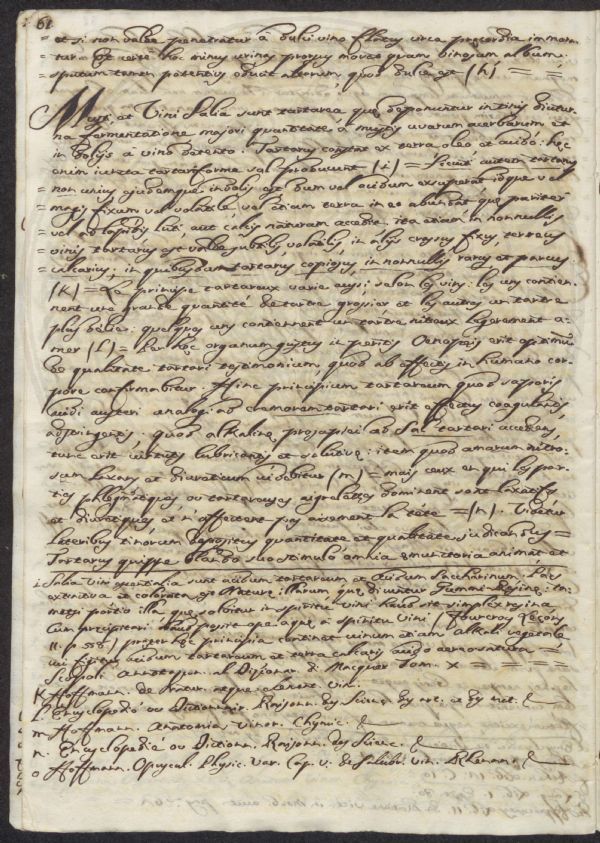 61
= et si non valde penetratur à dulci vino flatus circa præcordia immoratur
tur = Et certè hoc minus urinas prorsus movet quam vinosum album.
= sputum tamen potentius educit alterum, quod dulce est (h) = =
Musti, et Vini Salia sunt tartarea quæ deponuntur in tinis diutur-
na fermentatione majori quantitate à mustis uvarum acerbarum et
in dolijs à vino potento. Tartarus constat ex terra oleo et acido: hæc
enim juncta tartariforme sal producunt (i) = Sicuti autem tartarus
= non unius ejusdemque indolis est dum vel acidum exsuperat idque vel
= magis fixum vel volatile, vel etiam terra in eo abundat, quæ pariter
= vel ad lapidis luti aut calcis naturam accedit, ita etiam in nonnullis
= vinis tartarus est valde subtilis, volatilis, in alijs crassus fixus, terreus
= calcarius; in quibusdam tartarus copiosus, in nonnullis rarus et parcus
(K) = Le principe tartareux varie aussi selon les vins: les uns contien-
nent une grande quantité de tartre grossier et les autres un tartre
plus délié: quelques uns contiennent un tartre nitreux legerement a-
mer (L) = Per hoc organum gustus in peritis Oenopolis erit optimum
de qualitate tartari testimonium, quod ab effectis in humano cor-
pore confirmabitur. Hinc principium tartareum quod saporis
acidi austeri analogi ad cremorem tartari erit effectus coagulantis,
adstringentis; quod alkalinæ prosapiei ad Sal tartari accedens,
tunc erit virtutis lubricantis et solutivæ: item quod amarum nitro-
sum laxans et diureticum videbitur (m) = mais ceux en qui les par-
ties phlegmatiques, ou tartareuses aigrelettes dominent sont laxatifs
et diuretiques, et n'affectent pas aisement la tête = (n). Videtur
lateribus tinorum depositus quantitate et qualitate judicandus =
Tartarus quippe blando suo stimulo omnia emunctoria animat et
i. Salia Vini essentialia sunt acidum tartareum et Acidum Saccharinum. Pars
extractiva et colorata est Naturæ illarum, quæ dicuntur Gummi-Resinæ: ta-
metsi portio illa quæ solvitur in spiritu vini haud sit simplex resina,
cum præcipitari haud possit ope aquæ à spiritu Vini (Fourcroy Leçons
II. p. 558.) præter hæc principia continet vinum etiam Alkali vegetabile
cui fixum acidum tartareum et terra calcaris acido aereo saturata =
Scopoli Annotazon. al Dizionar. di Macquer Tom. X = = = =
K Hoffmann. de Natur. neque ... vin.
L. Encyclopedie ou Dictionnair. Raisonn. des Scienc. des art. et des met.
m Hoffmann. Anatomia Vinor. Chymic.
n. Encyclopedie ou Dictionn. Raisonn. des Scienc.
o Hoffmann. Opuscul. Physic. Var. Cap. V. de Salubr. vin. Rhenan.